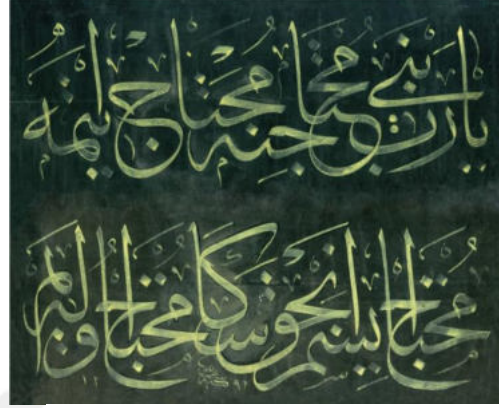 يا رب بني محتاجنه محتاج ايتمه
محتاج ايسم انجق سكا محتاج اولهيم